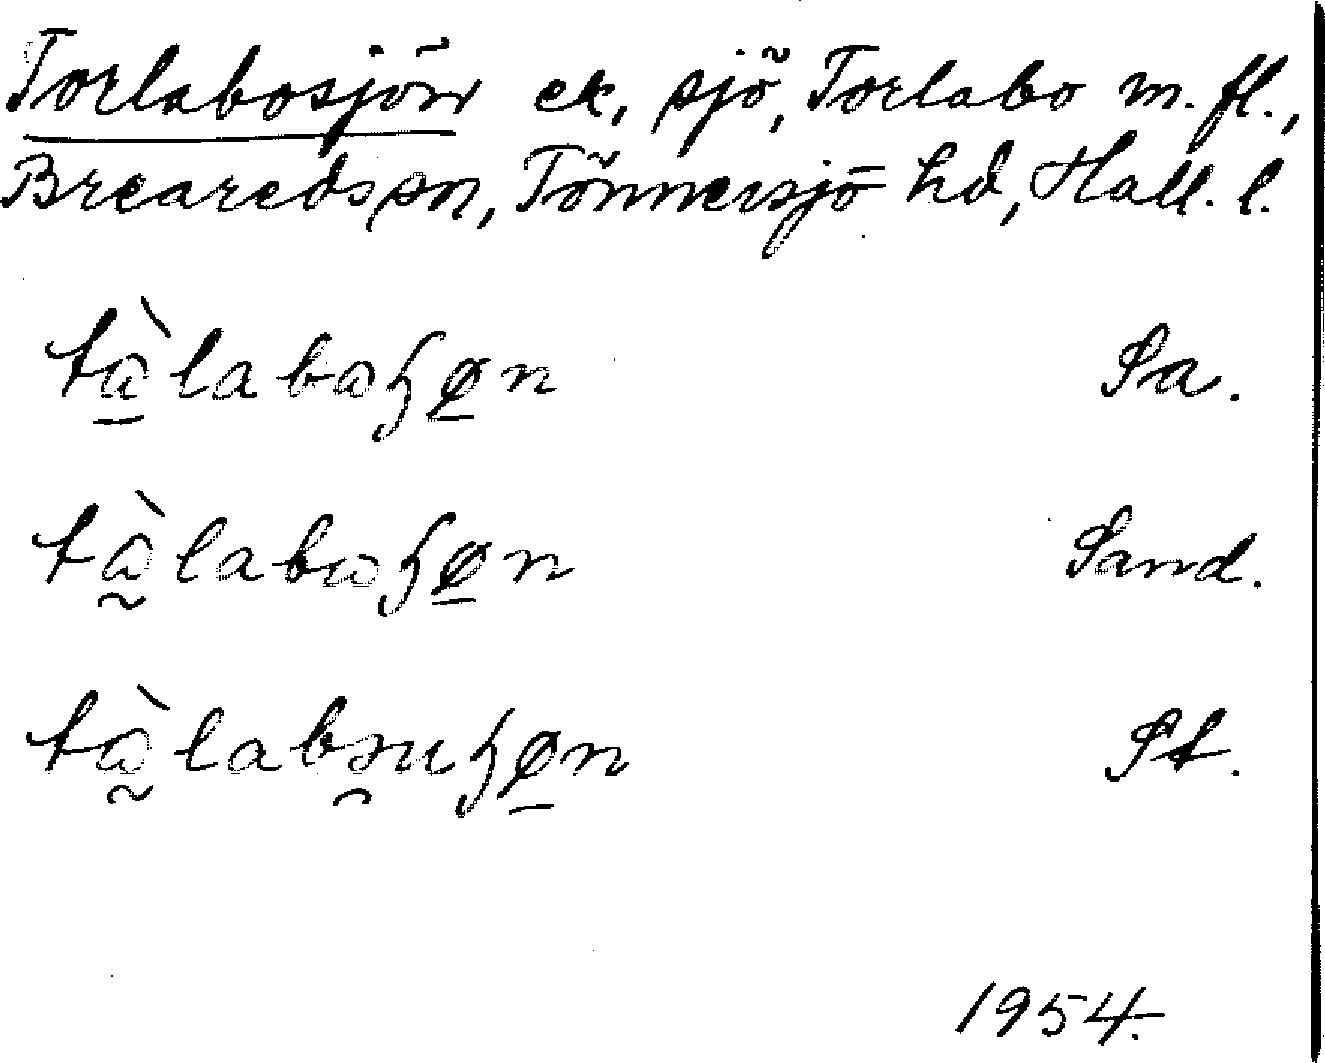 Torlabosjön ek, sjö, Torlabo m. fl.,
Breareds sn, Tönnersjö hd, Hall. l.
tɷ̀labɷɧøn Sa.
tɷ̀labɷɧøn Sand.
tɷ̀labɷuɧøn St.
1954.